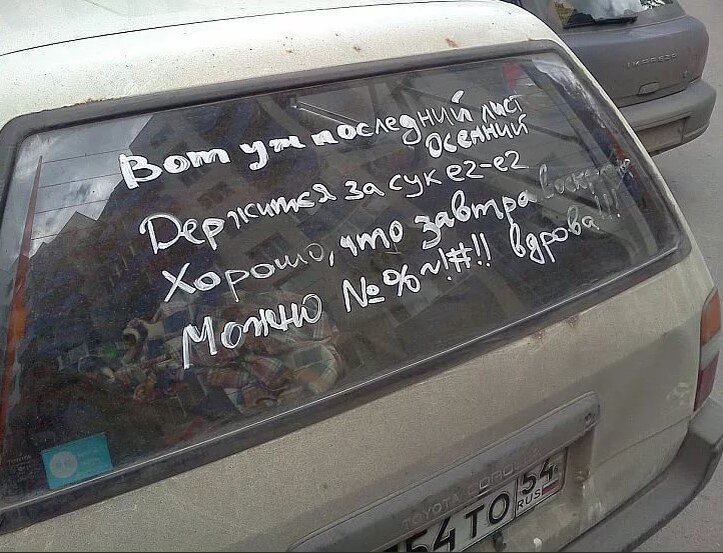 Вот уж последний лист
осенний
Держится за сук ег-ег
Хорошо, что завтра воскресенье
Можно №%~!#!! вдрова!!!
IMPREZA
TOYOTA COROLLA
54 ТО 54
RUS